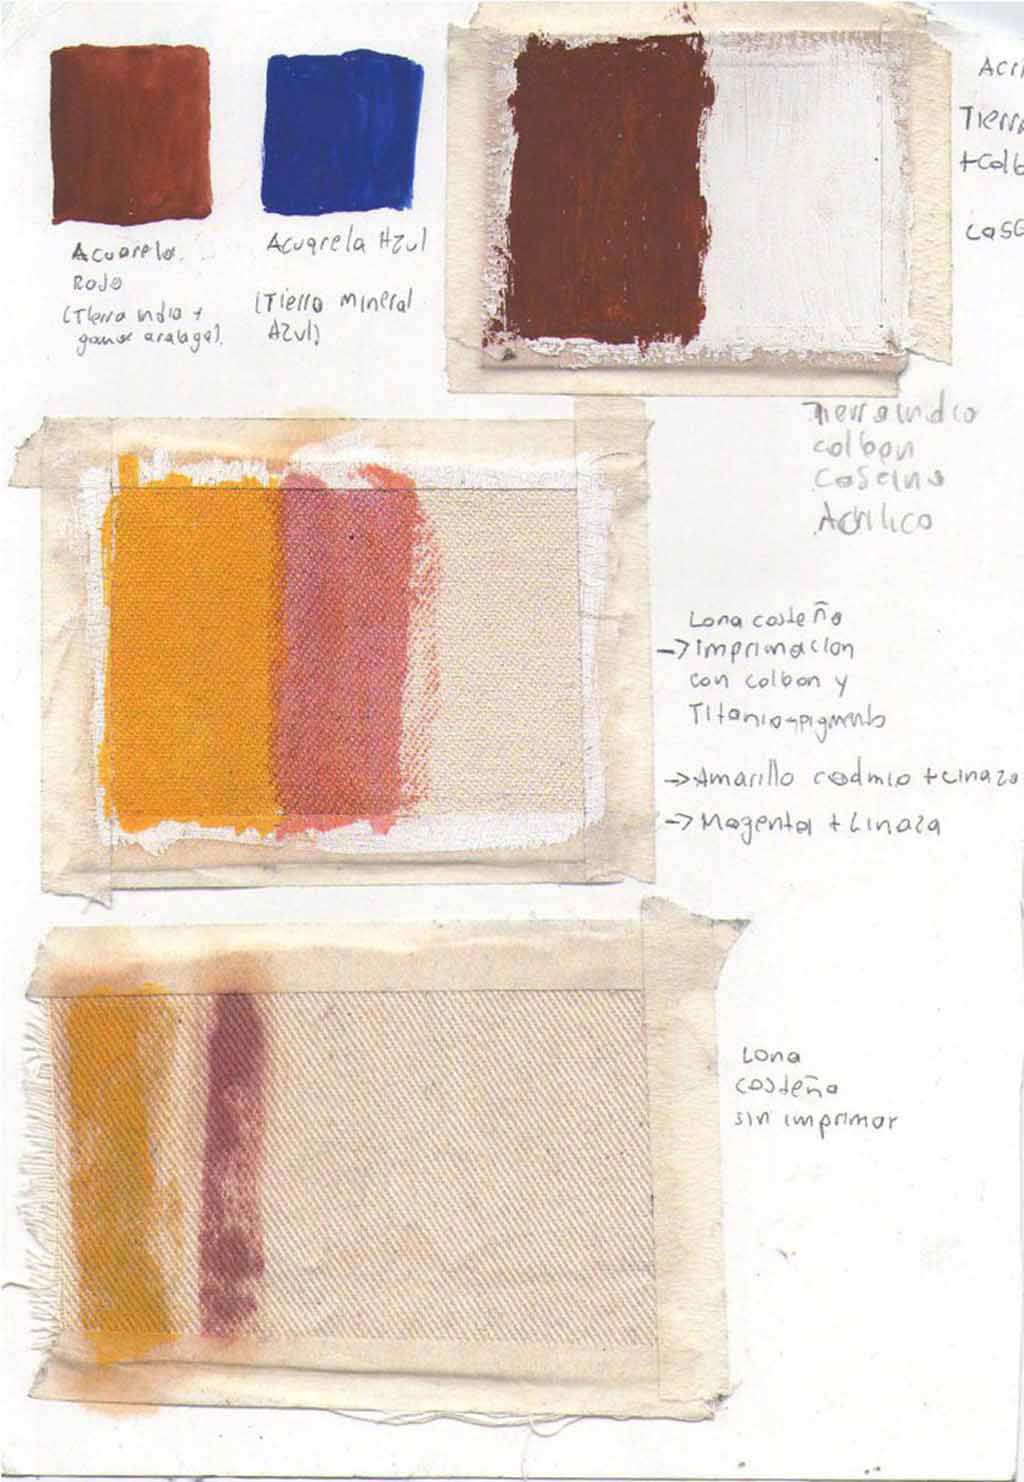 Acuarela
Rojo
(Tierra india +
goma arabiga).
Acuarela Azul
(Tierra mineral
Azul)
Acri
Tierra
+colb
case
Tierra india
colbon
Caseina
Acrilico
Lona costeño
→ imprimacion
con colbon y
Titanio→pigmento
→ Amarillo cadmio + Linaza
→ Magenta + Linaza
Lona
costeña
sin imprimar